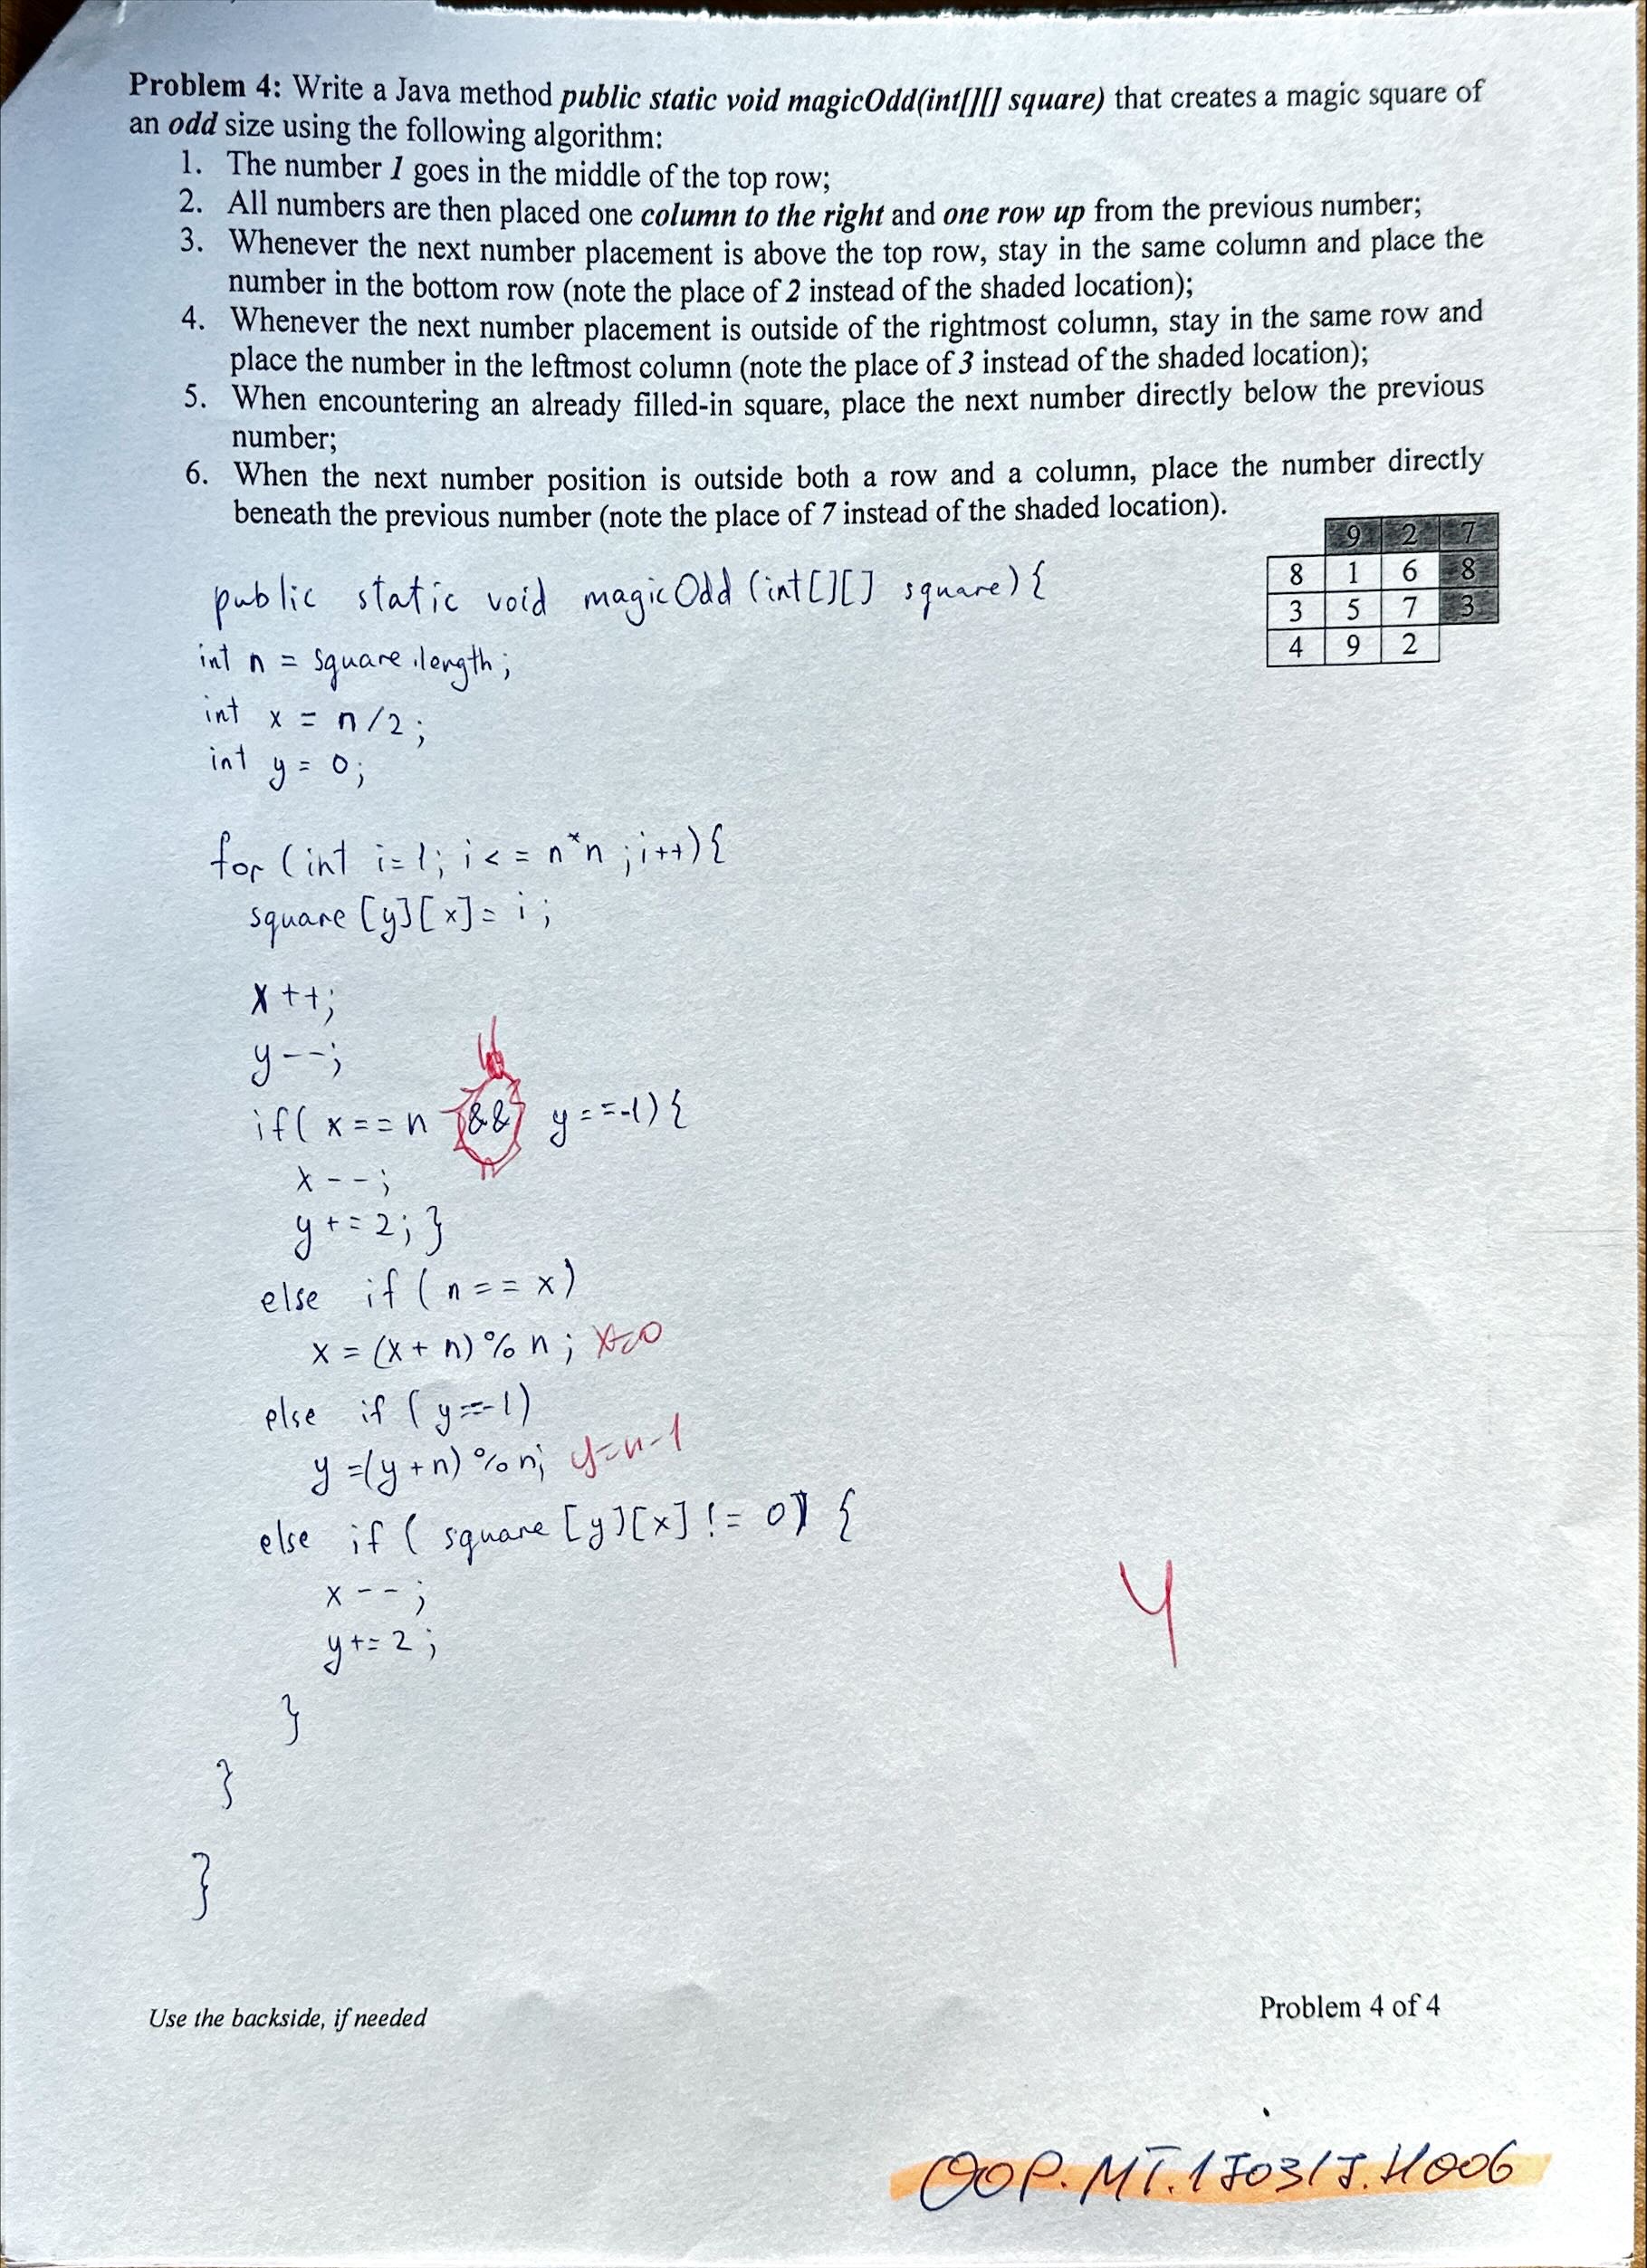 Problem 4: Write a Java method public static void magicOdd(int[][] square) that creates a magic square of
an odd size using the following algorithm:
1. The number 1 goes in the middle of the top row;
2. All numbers are then placed one column to the right and one row up from the previous number;
3. Whenever the next number placement is above the top row, stay in the same column and place the
number in the bottom row (note the place of 2 instead of the shaded location);
4. Whenever the next number placement is outside of the rightmost column, stay in the same row and
place the number in the leftmost column (note the place of 3 instead of the shaded location);
5. When encountering an already filled-in square, place the next number directly below the previous
number;
6. When the next number position is outside both a row and a column, place the number directly
beneath the previous number (note the place of 7 instead of the shaded location).
9 2 7
8 1 6 8
3 5 7 3
4 9 2
public static void magicOdd (int[][] square) {
int n = square.length;
int x = n/2;
int y = 0;
for (int i=1; i <= n*n ; i++) {
square [y][x] = i ;
x ++;
y --;
if( x == n && y == -1) {
x --;
y += 2; }
else if ( n == x)
x = (x + n) % n ; x=0
else if ( y==-1)
y =(y + n) % n; y=n-1
else if ( square [y][x] != 0) {
x -- ;
y += 2 ;
}
}
}
4
Use the backside, if needed
Problem 4 of 4